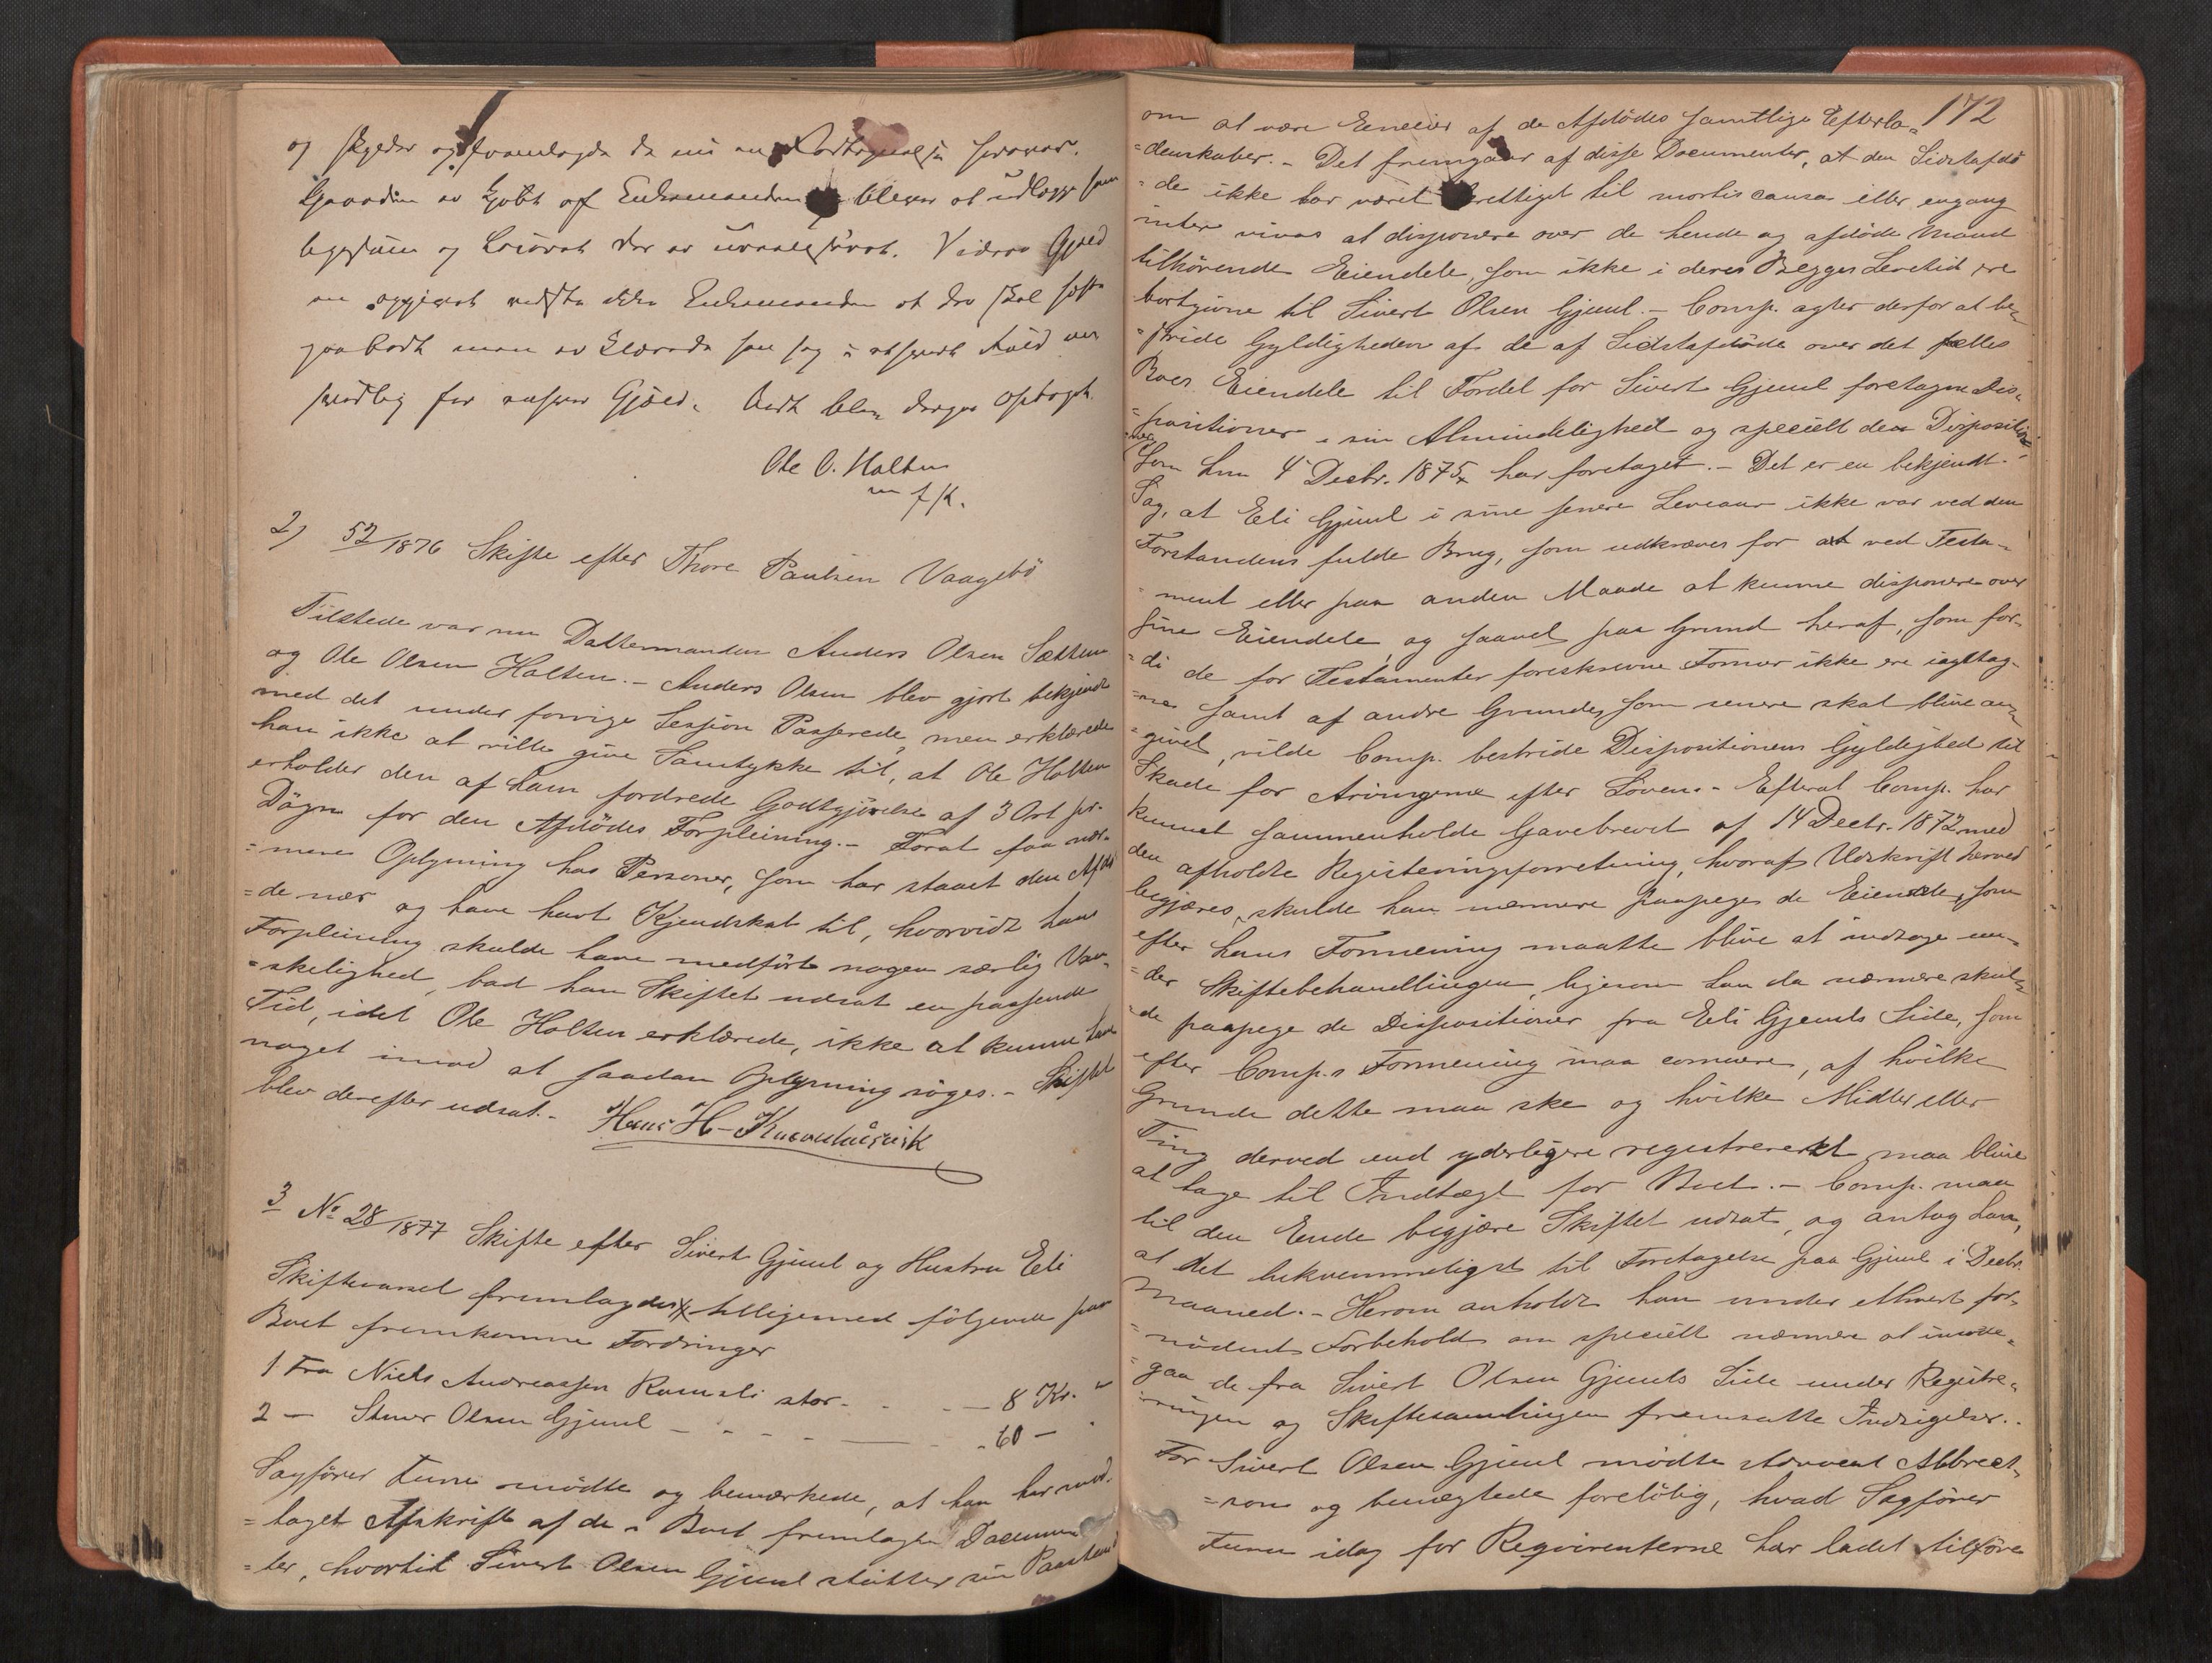 og
af Enkemanden bleven at udlægge
og Videre Gjæld
Enkemanden at der skal
Gjæld. blev optaget.
Ole O. Holten
m. f. P.
2) 52/1876 Skifte efter Thore Paulsen Vaagebö
Tilstede var nu Dattermanden Anders Olsen Sætten
og Ole Olsen Holten. - Anders Olsen blev gjort bekjendt
med det under forrige Session Passerede, men erklærede
han ikke at ville give Samtykke til, at Ole Holten
erholder den af ham fordrede Godtgjörelse af 3 Ort pr.
Dögn for den Afdödes Forpleining. - Forat faa nær-
=mere Oplysning hos Personer, som har staaet den Afdö
=de nær og have havt Kjendskab til, hvorvidt hans
Forpleining skulde have medfört nogen særlig Van-
=skelighed, bad han Skiftet udsat en passende
Tid, idet Ole Holten erklærede, ikke at kunne have
noget imod at saadan Oplysning söges. - Skiftet
blev derefter udsat. -
Hans H-
3 No 28/1877 Skifte efter Sivert Gjuul og Hustru Eli
Skiftevarsel fremlagdes tilligemed fölgende paa
Boet fremkomne Fordringer
1 Fra Niels Andreassen stor - - - 8 Kr. "
2 — Olsen Gjuul - - - - — - 60 — "
Sagförer Tune mödte og bemærkede, at han har mod-
=taget Afskrift af de i Boet fremlagte Documen
=ter, hvortil Sivert Olsen Gjuul stötter sin Paastand
172
om at være Eneeier af de Afdödes samtlige Efterla-
=denskaber. - Det fremgaar af disse Documenter, at den Sidstafdö
=de ikke har været berettiget til mortis causa eller engang
inter vivos at disponere over de hende og afdöde Mand
tilhörende Eiendele, som ikke i deres Begges Levetid ere
bortgivne til Sivert Olsen Gjuul. - Comp. agter derfor at be-
=stride Gyldigheden af de af Sidstafdöde over det fælles
Boes Eiendele til Fordel for Sivert Gjuul foretagne Dis-
=positioner i sin Almindelighed og specielt den Disposition
som hun 4 Decbr. 1875 har foretaget. - Det er en bekjendt
Sag, at Eli Gjuul i sine senere Leveaar ikke var ved den
Forstandens fulde Brug, som udkræves for at ved Testa-
=ment eller paa anden Maade at kunne disponere over
sine Eiendele, og saavel paa Grund heraf, som for-
=di de for Testamenter foreskrevne Former ikke ere iagttag-
=ne samt af andre Grunde, som senere skal blive an-
=givet, vilde Comp. bestride Dispositionens Gyldighed til
Skade for Arvingerne efter Loven. - Efterat Comp. har
kunnet sammenholde Gavebrevet af 14 Decbr. 1872 med
den afholdte Registeringsforretning, hvoraf Udskrift herved
begjæres, skulde han nærmere paapege de Eiendele, som
efter hans Formening maatte blive at inddrage un-
=der Skiftebehandlingen, ligesom han da nærmere skul-
=de paapege de Dispositioner fra Eli Gjuuls Side, som
efter Comp.s Formening maa, af hvilke
Grunde dette maa ske og hvilke Midler eller
Ting derved end yderligere registreret maa blive
at tage til Indtægt for Boet. - Comp. maa
til den Ende begjære Skiftet udsat, og antog han,
at det bekvemmeligst til Foretagelse paa Gjuul i Decbr.
Maaned. - Herom anholdt han under ethvert for-
=nödent Forbehold om specielt nærmere at imöde-
=gaa de fra Sivert Olsen Gjuuls Side under Registre-
=ringen og Skiftesamlingen fremsatte Indsigelser. -
For Sivert Olsen Gjuul mödte Albrect-
=sen og benægtede forelöbig, hvad Sagförer
Tune idag for Reqvirenterne har ladet tilföre